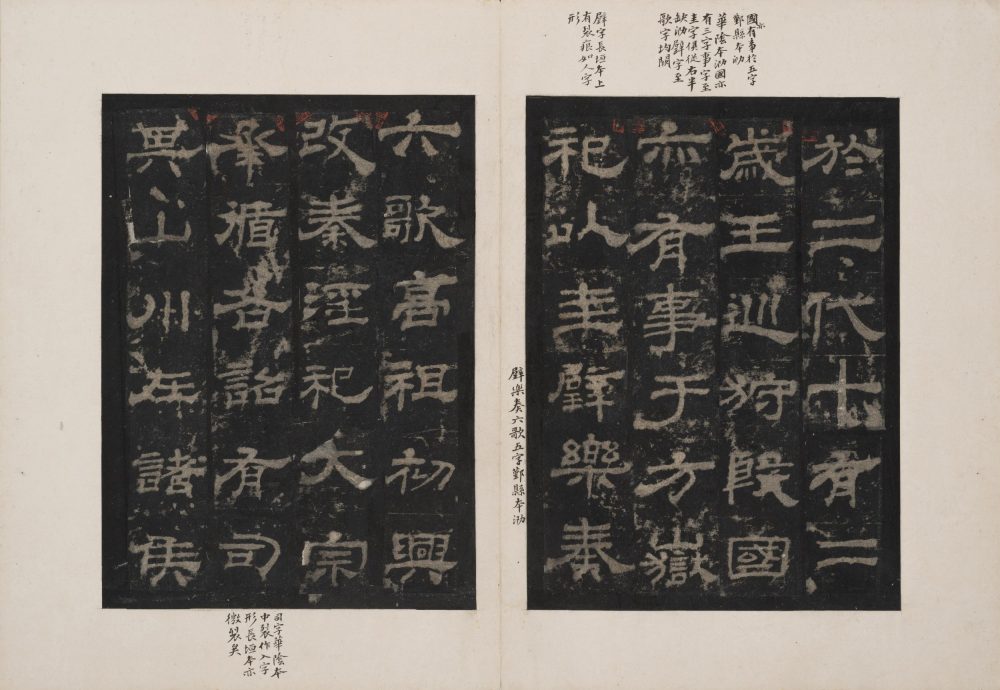 國亦有事於五字
鄞縣本泐
華陰本泐國亦
有三字事字至
圭字俱從右半
缺泐璧字至
歌字均闕
璧字長垣本上
有裂痕如人字
形
於二〻代十有二
歲王巡狩殷國
亦有事于方嶽
祀以圭璧樂奏
璧樂奏六歌五字鄞縣本泐
六歌高祖初興
改秦淫祀大宗
承循各詔有司
其山川在諸侯
司字華陰本
中裂作人字
形長垣本亦
微裂矣